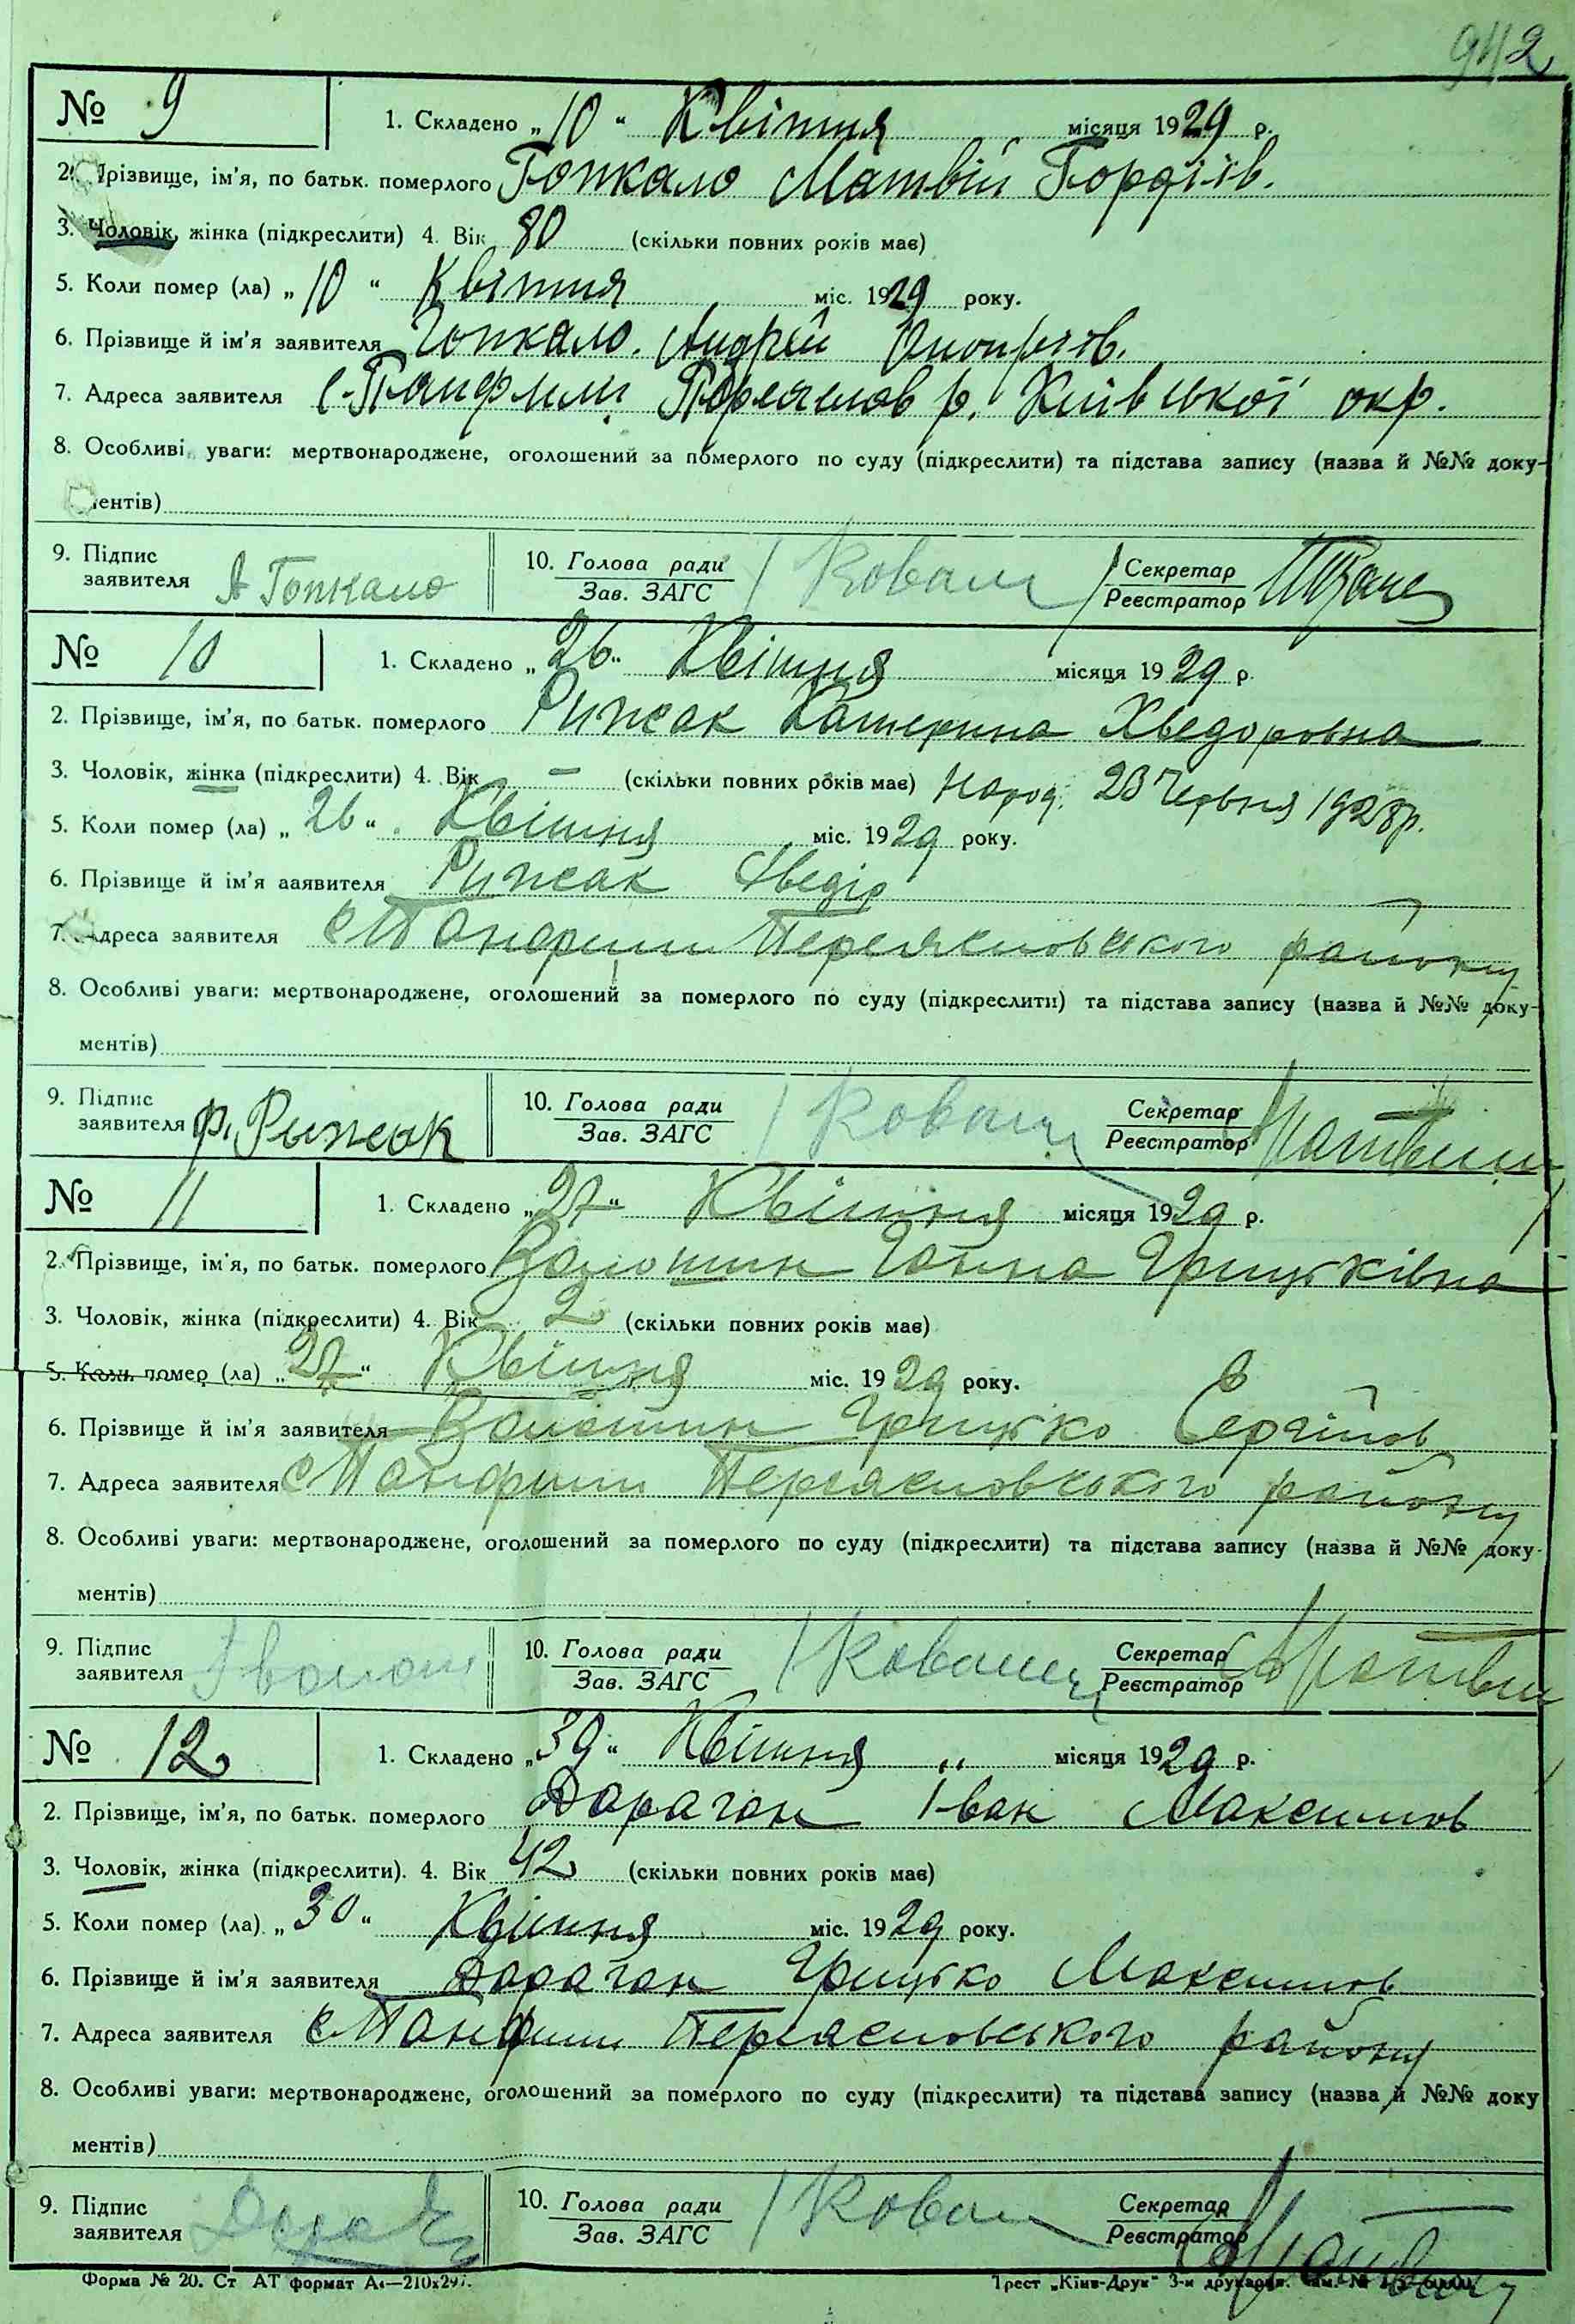 942
№ 9 1. Складено „10“ Квітня місяця 1929 р.
2. Прізвище, ім'я, по батьк. померлого Гопкало Матвій Гордіїв.
3. Чоловік, жінка (підкреслити) 4. Вік 80 (скільки повних років має)
5. Коли помер (ла) „10“ Квітня міс. 1929 року.
6. Прізвище й ім'я заявителя Гопкало. Андрій Оноприїв.
7. Адреса заявителя с. Панфили Переяслов р. Київської окр.
8. Особливі уваги: мертвонароджене, оголошений за померлого по суду (підкреслити) та підстава запису (назва й №№ доку-
ментів)
9. Підпис заявителя А Гопкало 10. Голова ради Коваль Секретар
Зав. ЗАГС Реєстратор
№ 10 1. Складено „26“ Квітня місяця 1929 р.
2. Прізвище, ім'я, по батьк. померлого Рижак Катерина Хведоровна
3. Чоловік, жінка (підкреслити) 4. Вік – (скільки повних років має) народ. 23 Червня 1928 р.
5. Коли помер (ла) „26“ Квітня міс. 1929 року.
6. Прізвище й ім'я заявителя Рижак Хведір
7. Адреса заявителя с Панфили Переясловського району
8. Особливі уваги: мертвонароджене, оголошений за померлого по суду (підкреслити) та підстава запису (назва й №№ доку-
ментів)
9. Підпис заявителя Ф. Рижак 10. Голова ради Коваль Секретар
Зав. ЗАГС Реєстратор
№ 11 1. Складено „27“ Квітня місяця 1929 р.
2. Прізвище, ім'я, по батьк. померлого Волошин Ганна Грицьківна
3. Чоловік, жінка (підкреслити) 4. Вік 2 (скільки повних років має)
5. Коли помер (ла) „27“ Квітня міс. 1929 року.
6. Прізвище й ім'я заявителя Волошин Грицько Сергійов
7. Адреса заявителя с Панфили Переясловського району
8. Особливі уваги: мертвонароджене, оголошений за померлого по суду (підкреслити) та підстава запису (назва й №№ доку-
ментів)
9. Підпис заявителя 10. Голова ради Коваль Секретар
Зав. ЗАГС Реєстратор
№ 12 1. Складено „30“ Квітня „ місяця 1929 р.
2. Прізвище, ім'я, по батьк. померлого Дараган Іван Максимов
3. Чоловік, жінка (підкреслити). 4. Вік 42 (скільки повних років має)
5. Коли помер (ла) „30“ Квітня міс. 1929 року.
6. Прізвище й ім'я заявителя Дараган Грицько Максимов
7. Адреса заявителя с Панфили Переясловського району
8. Особливі уваги: мертвонароджене, оголошений за померлого по суду (підкреслити) та підстава запису (назва й №№ доку
ментів)
9. Підпис заявителя 10. Голова ради Коваль Секретар
Зав. ЗАГС Реєстратор
Форма № 20. Ст АТ формат А4—210x297. Трест „Київ-Друк“ 3-я друкарня.